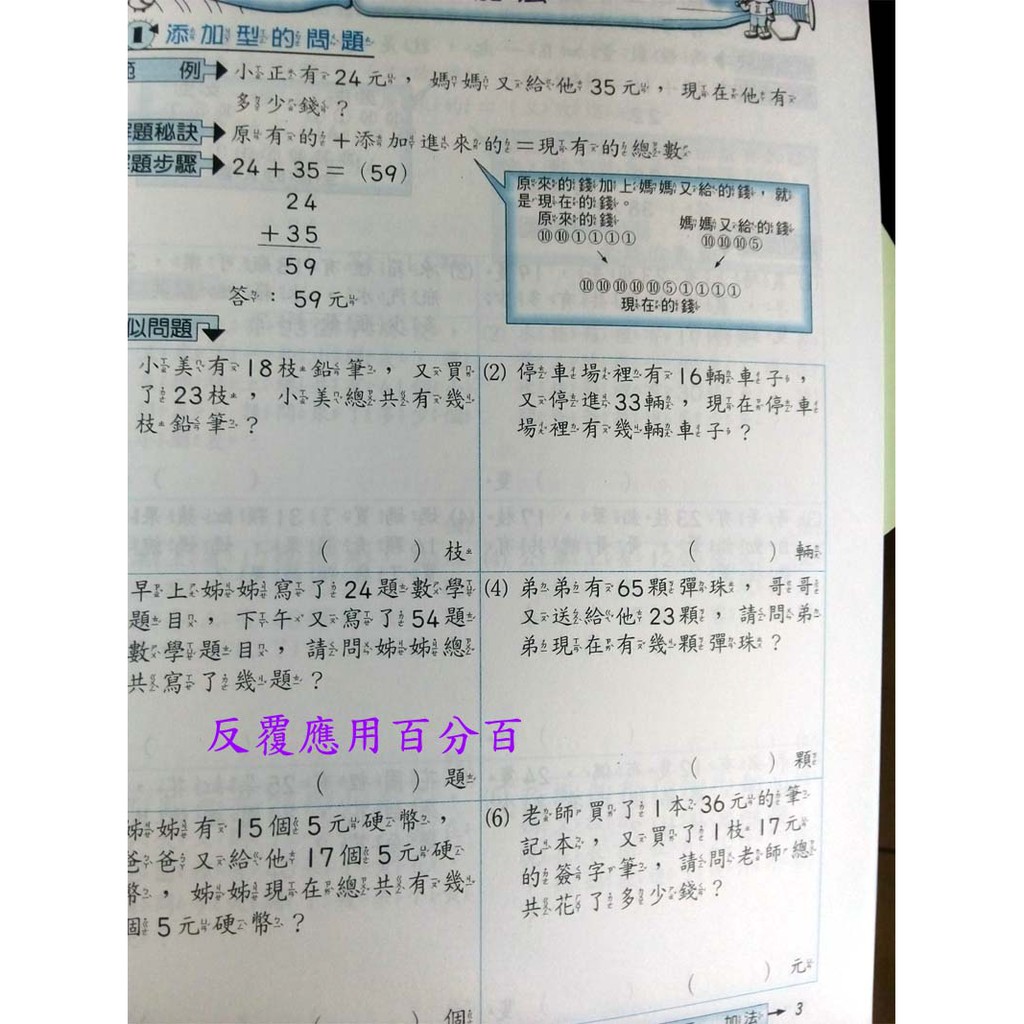 1 添加型的問題
例
小正有24元，媽媽又給他35元，現在他有
多少錢？
題秘訣
原有的＋添加進來的＝現有的總數
題步驟
24＋35＝（59）
24
＋35
59
答：59元
原來的錢加上媽媽又給的錢，就
是現在的錢。
原來的錢
媽媽又給的錢
⑩⑩①①①①
⑩⑩⑩⑤
⑩⑩⑩⑩⑩⑤①①①①
現在的錢
似問題
小美有18枝鉛筆，又買
了23枝，小美總共有幾
枝鉛筆？
（ ）枝
(2) 停車場裡有16輛車子，
又停進33輛，現在停車
場裡有幾輛車子？
（ ）輛
早上姊姊寫了24題數學
題目，下午又寫了54題
數學題目，請問姊姊總
共寫了幾題？
（ ）題
(4) 弟弟有65顆彈珠，哥哥
又送給他23顆，請問弟
弟現在有幾顆彈珠？
（ ）顆
反覆應用百分百
姊姊有15個5元硬幣，
爸爸又給他17個5元硬
幣，姊姊現在總共有幾
個5元硬幣？
（ ）個
(6) 老師買了1本36元的筆
記本，又買了1枝17元
的簽字筆，請問老師總
共花了多少錢？
（ ）元
加法
3